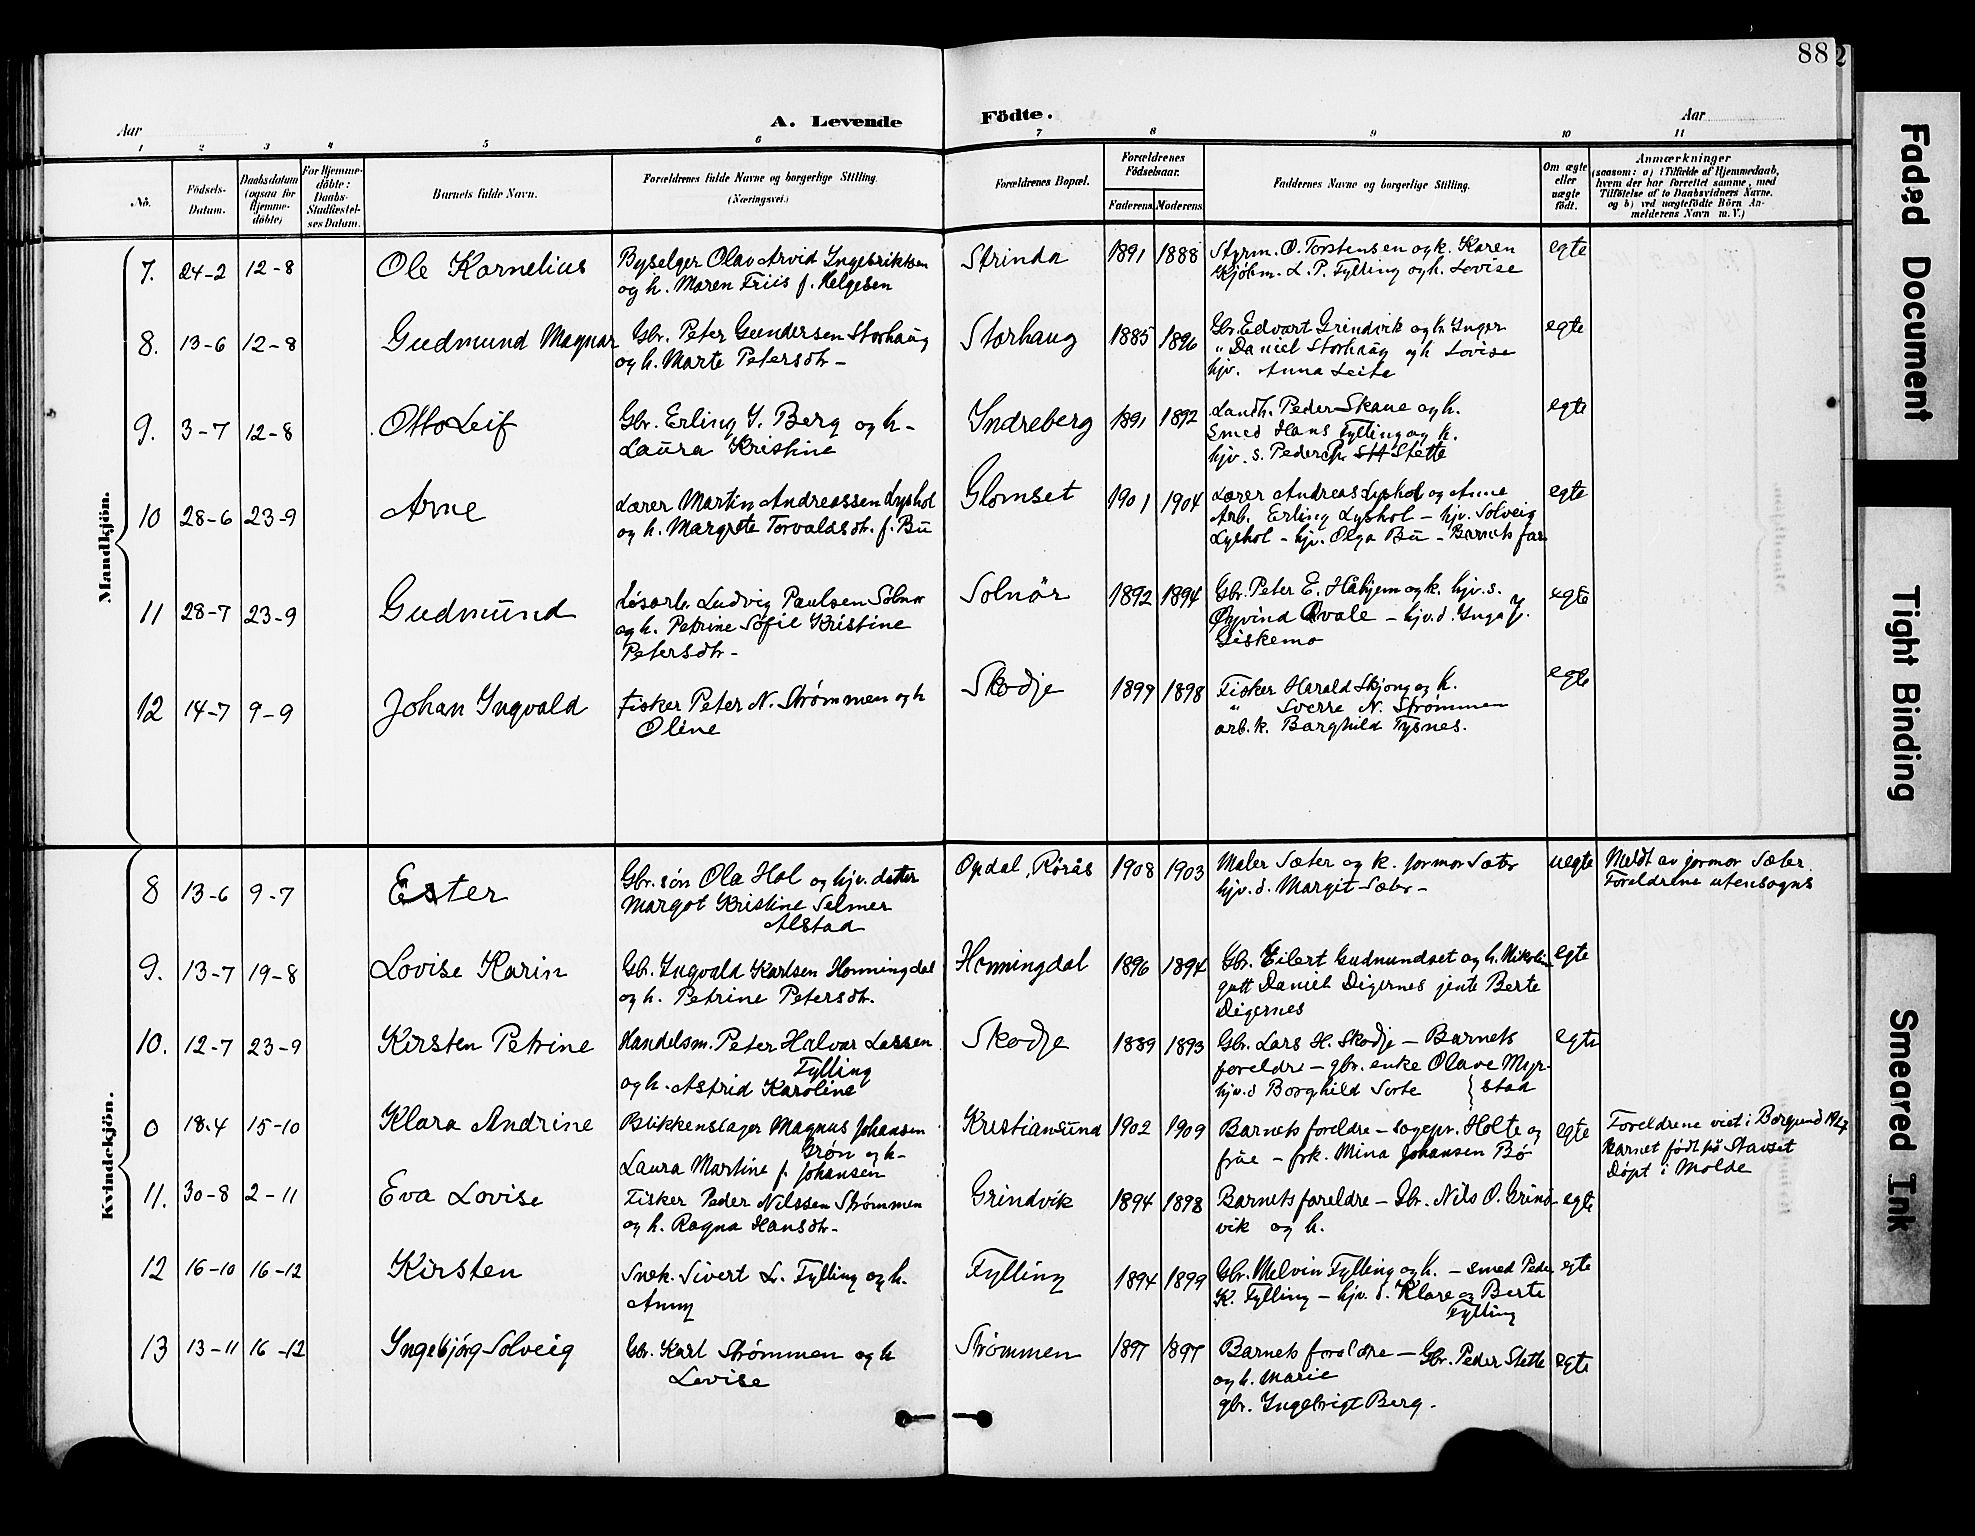 88
A. Levende Födte.
Aar
Aar
1 2 3 4 5 6 7 8 9 10 11
No.
Födsels-Datum.
Daabsdatum (ogsaa for Hjemme-döbte)
For Hjemme-döbte: Daabs-Stadfæstel-ses Datum.
Barnets fulde Navn.
Forældrenes fulde Navne og borgerlige Stilling. (Næringsvei.)
Forældrenes Bopæl.
Forældrenes Födselsaar.
Faderens
Moderens
Faddernes Navne og borgerlige Stilling.
Om ægte eller uægte födt.
Anmærkninger
(saasom: a) i Tilfælde af Hjemmedaab, hvem der har forrettet samme, med Tilföielse af to Daabsvidners Navne. og b) ved uægtefödte Börn Anmelderens Navn m. V.)
Mandkjön.
7. 24-2 12-8 Ole Kornelius
Byselger Olav Arvid Ingebriktsen
og h. Maren Friis f. Helgesen
Strinda 1891 1888
Styrm. O. Torstensen og k. Karen
Kjøbm. L. P. Fylling og h. Lovise
egte
8. 13-6 12-8 Gudmund Magnar
Gbr. Peter Gundersen Storhaug
og h. Marte Petersdtr -
Storhaug 1885 1896
Gbr. Edvart Grindvik og h. Inger
" Daniel Storhaug og h Lovise
hjv. Anna Leite
egte
9. 3-7 12-8 Otto Leif
Gbr. Erling I. Berg og h -
Laura Kristine
Indreberg 1891 1892
Landh. Peder Skaue og h.
Smed Hans Fylling og h.
hjv. s. Peder Stette
egte
10 28-6 23-9 Arne
Lærer Martin Andreassen Lyshol
og h. Margrete Torvaldsdtr. f. Bu
Glomset 1901 1904
Lærer Andreas Lyshol og Anne
Arb. Erling Lyshol - hjv. Solveig
Lyshol - hjv. Olga Bu - Barnets far
egte
11 28-7 23-9 Gudmund
Løsarb. Ludvig Paulsen Solnør
og h. Petrine Sofie Kristine
Petersdtr -
Solnör 1892 1894
Gbr. Peter E. Håhjem og k. hjv. s.
Øyvind Kvale - hjv. d. Inga J.
Giskemo
egte
12 14-7 9-9 Johan Ingvald
Fisker Peter N. Strømmen og h
Oline
Skodje 1899 1898
Fisker Harald Skjong og h.
" Sverre N. Strømmen
arb. k. Borghild Tysnes.
egte
Kvindekjön.
8 13-6 9-7 Ester
Gbr. søn Ola Hol og hjv. datter
Margot Kristine Selmer
Alstad
Opdal, Rørås 1908 1903
Maler Sæter og k. formor Sæter
hjv. d. Margit Sæter -
uegte
Meldt av formor Sæter
Foreldrene utensogns
9. 13-7 19-8 Lovise Karin
Gb. Ingvald Karlsen Honningdal
og h. Petrine Petersdtr.
Honningdal 1896 1894
Gbr. Eilert Gudmundset og h. Nikoline
gutt Daniel Digernes jente Berte
Digernes
egte
10. 12-7 23-9 Kirsten Petrine
Handelsm. Peter Halvar Lassen
Fylling
og h. Astrid Karoline
Skodje 1889 1893
Gbr. Lars H. Skodje - Barnets
foreldre - gbr. enke Olave Myr-
hjv. d Borghild Sorte { stad
egte
0 18.4 15-10 Klara Andrine
Blikkenslager Magnus Johansen
Grön og h-
Laura Martine f. Johansen
Kristiansund 1902 1909
Barnets foreldre - sogepr. Holte og
frue - frk. Mina Johansen Bö
egte
Foreldrene viet i Borgund 1927
Barnet født på Stavset
Döpt i Molde
11. 30-8 2-11 Eva Lovise
Fisker Peder Nilssen Strømmen
og h. Ragna Hansdtr -
Grindvik 1894 1898
Barnets foreldre - Gbr. Nils O. Grind-
vik og h.
egte
12 16-10 16-12 Kirsten
Snek. Sivert L. Fylling og h.
Anny
Fylling 1894 1899
Gbr. Melvin Fylling og h. - smed Peder
K. Fylling - hjv. d. Klare og Berte
Fylling
egte
13 13-11 16-12 Ingebjørg Solveig
Gbr. Karl Strømmen og h
Lovise
Strømmen 1897 1897
Barnets foreldre - Gbr. Peder Stette
og h. Marie
gbr. Ingebrigt Berg.
egte
Faded Document
Tight Binding
Smeared Ink